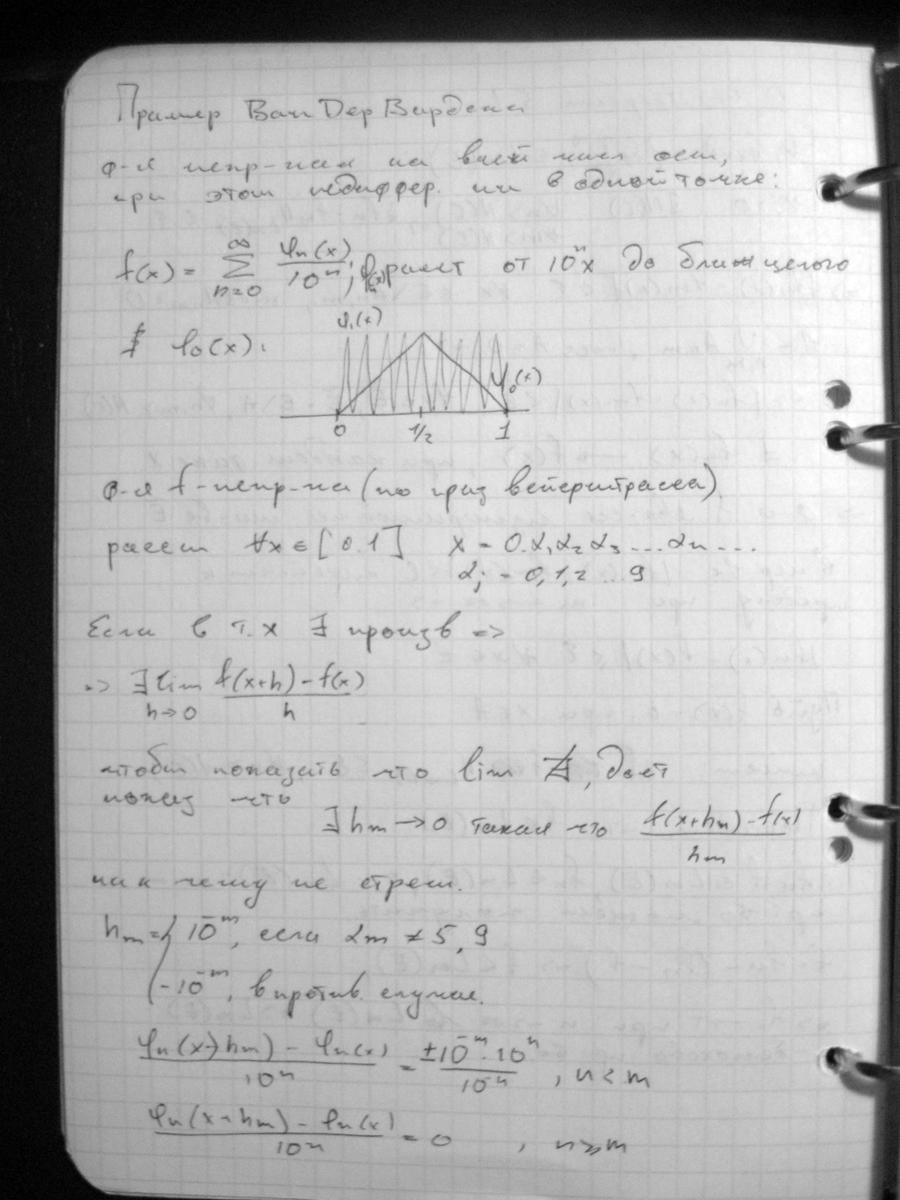 Пример Ван Дер Вардена
ф-я непр-ная на всей числ оси,
при этом недиффер. ни в одной точке:
f(x) = ∑_{n=0}^{∞} φₙ(x)/10ⁿ ; φₙ(x) расст от 10ⁿx до ближ целого
φ₀(x):
φ₁(x)
φ₀(x)
0 1/2 1
ф-я f - непр-на (по приз Вейерштрасса)
рассм ∀x ∈ [0.1] x = 0.α₁α₂α₃...αₙ...
αⱼ = 0,1,2...9
Если в т.x ∃ произв =>
=> ∃ lim_{h→0} (f(x+h) - f(x))/h
чтобы показать что lim ∄, дост
показ что
∃ hₘ → 0 такая что (f(x+hₘ) - f(x))/hₘ
ни к чему не стрем.
hₘ = { 10⁻ᵐ, если αₘ ≠ 5, 9
{ -10⁻ᵐ, в против. случае.
(φₙ(x+hₘ) - φₙ(x))/10ⁿ = ±10⁻ᵐ·10ⁿ/10ⁿ , n < m
(φₙ(x+hₘ) - φₙ(x))/10ⁿ = 0 , n ⩾ m